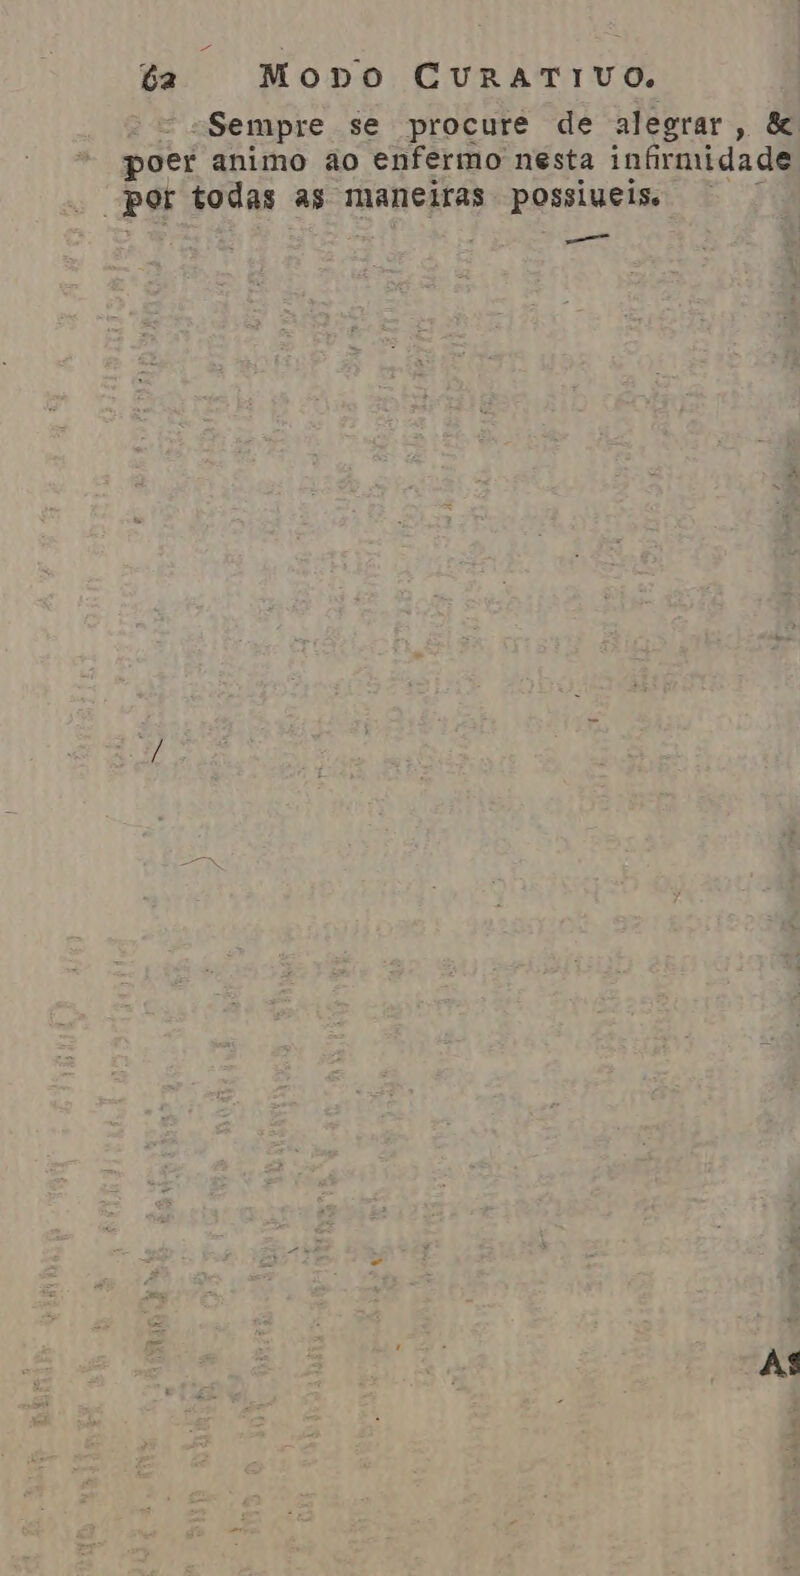 62 MODO CURATIVO.
Sempre se procure de alegrar, &
poer animo ao enfermo nesta infirmidade
por todas as maneiras possiueis.
As